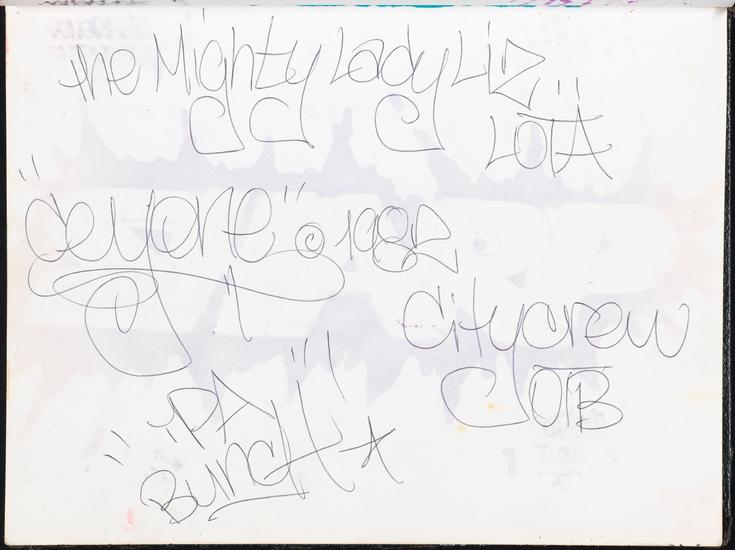 the Mighty Lady Liz
LOTA
"Ceyone" @ 1982
City crew
OTB
"DA
Bunch!"